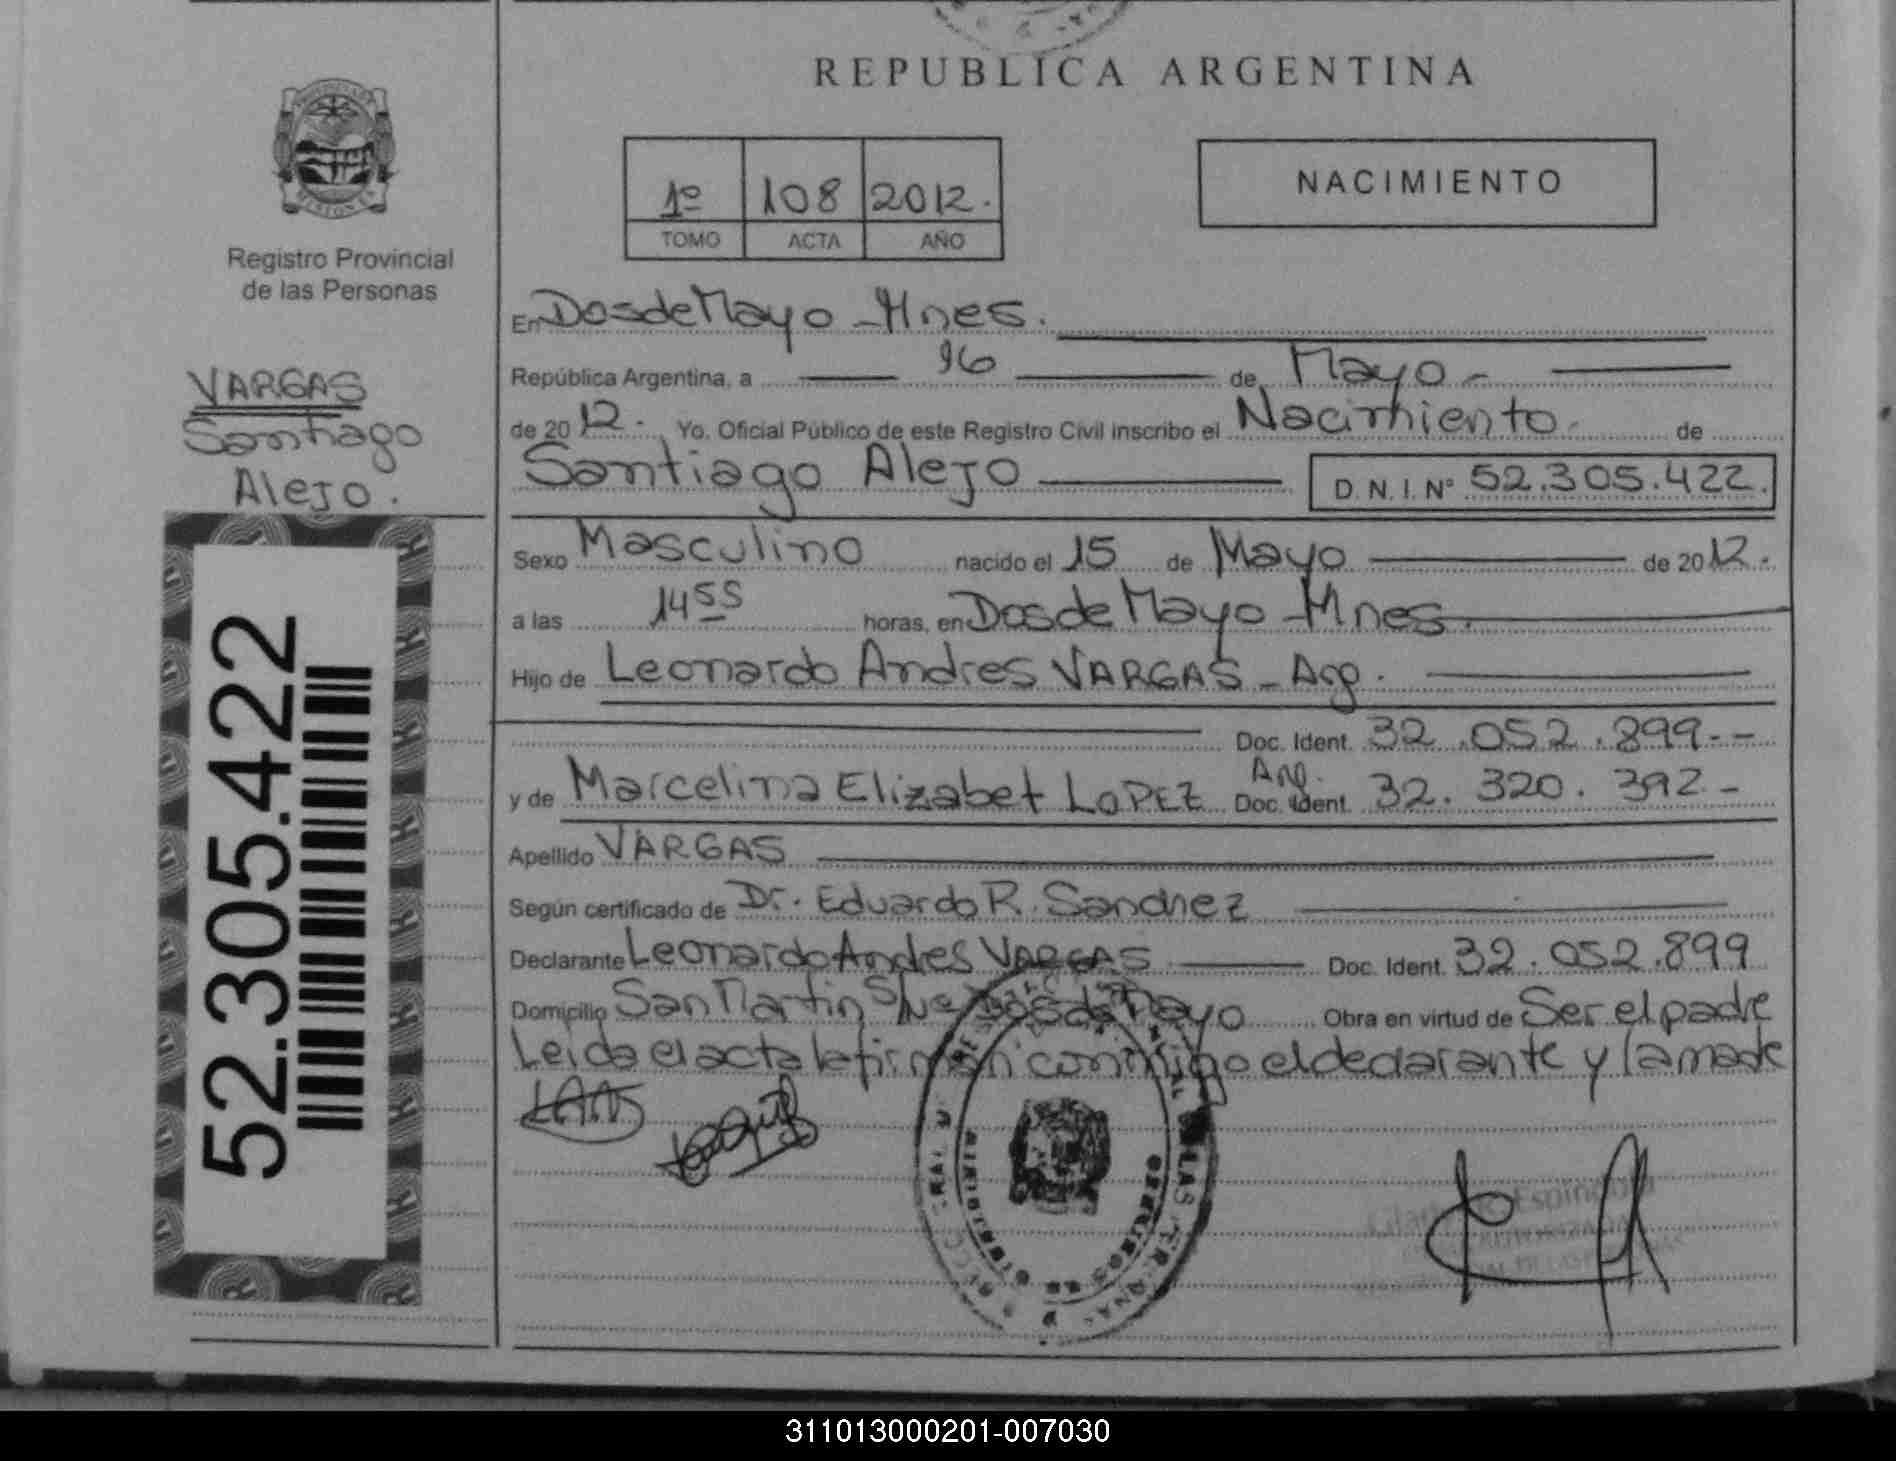 REPUBLICA ARGENTINA
1º 108 2012.
TOMO ACTA AÑO
NACIMIENTO
Registro Provincial
de las Personas
VARGAS
Santiago
Alejo.
52.305.422
En Dos de Mayo - Mnes.
República Argentina, a 16 de Mayo -
de 2012. Yo. Oficial Público de este Registro Civil inscribo el Nacimiento. de
Santiago Alejo D.N.I. Nº 52.305.422.
Sexo Masculino nacido el 15 de Mayo de 2012.
a las 14 55 horas, en Dos de Mayo - Mnes.
Hijo de Leonardo Andres VARGAS - Arg.
Doc. Ident. 32.052.899--
Arg.
y de Marcelina Elizabet LOPEZ Doc. Ident. 32.320.392.-
Apellido VARGAS
Según certificado de Dr. Eduardo R. Sanchez
Declarante Leonardo Andres VARGAS Doc. Ident. 32.052.899
Domicilio San Martin S/Nº Dos de Mayo Obra en virtud de Ser el padre
Leida el acta la firman conmigo el declarante y la madre
Espindola
311013000201-007030